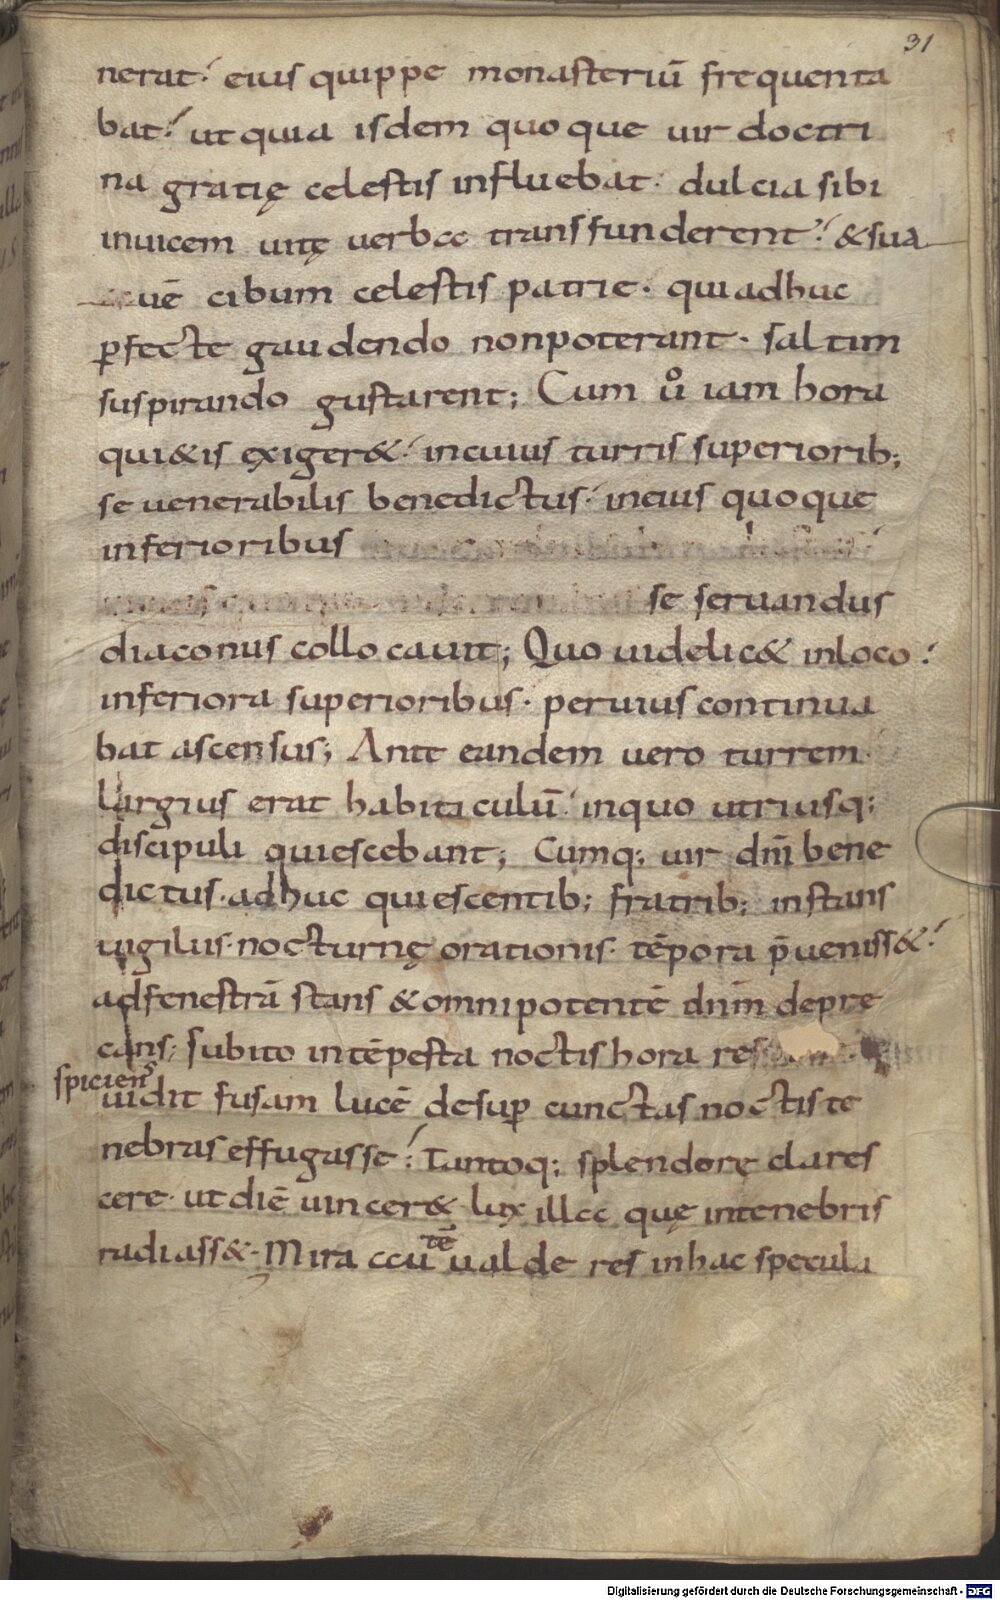 31
nerat. eius quippe monasteriū frequenta
bat. ut quia isdem quoque uir doctri
na gratię celestis influebat. dulcia sibi
inuicem uitę uerba transfunderent. & sua
uē cibum celestis patrie. qui adhuc
p̲fecte gaudendo non poterant. saltim
suspirando gustarent; Cum uͦ iam hora
qui&is exiger&. in cuius turris superiorib;
se uenerabilis benedictus. in eius quoque
inferioribus
se seruandus
diaconus collocauit; Quo uidelic& in loco.
inferiora superioribus. peruius continua
bat ascensus; Ante eandem uero turrem.
largius erat habitaculū. in quo utriusq;
discipuli quiescebant; Cumq; uir dn̄i bene
dictus. adhuc quiescentib; fratrib; instans
uigiliis. nocturnę orationis. tēpora p̄ueniss&.
ad fenestrā stans & omnipotentē dn̄m depre
cans; subito intēpesta noctis hora re
spiciens
uidit fusam lucē desup̲ cunctas noctis te
nebras effugasse. Tantoq; splendorę clares
cere. ut diē uincer& lux illa quę in tenebris
radiass&. Mira autē ualde res in hac specula
Digitalisierung gefördert durch die Deutsche Forschungsgemeinschaft - DFG